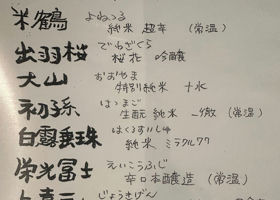 米鶴 よねつる
純米 超辛 (常温)
出羽桜 でわざくら
桜花 吟醸
大山 おおやま
特別純米 十水
初孫 はつまご
生酛純米 (常温)
白露垂珠 はくろすいしゅ
純米 ミラクル77
栄光冨士 えいこうふじ
辛口本醸造 (常温)
上喜元 じょうきげん